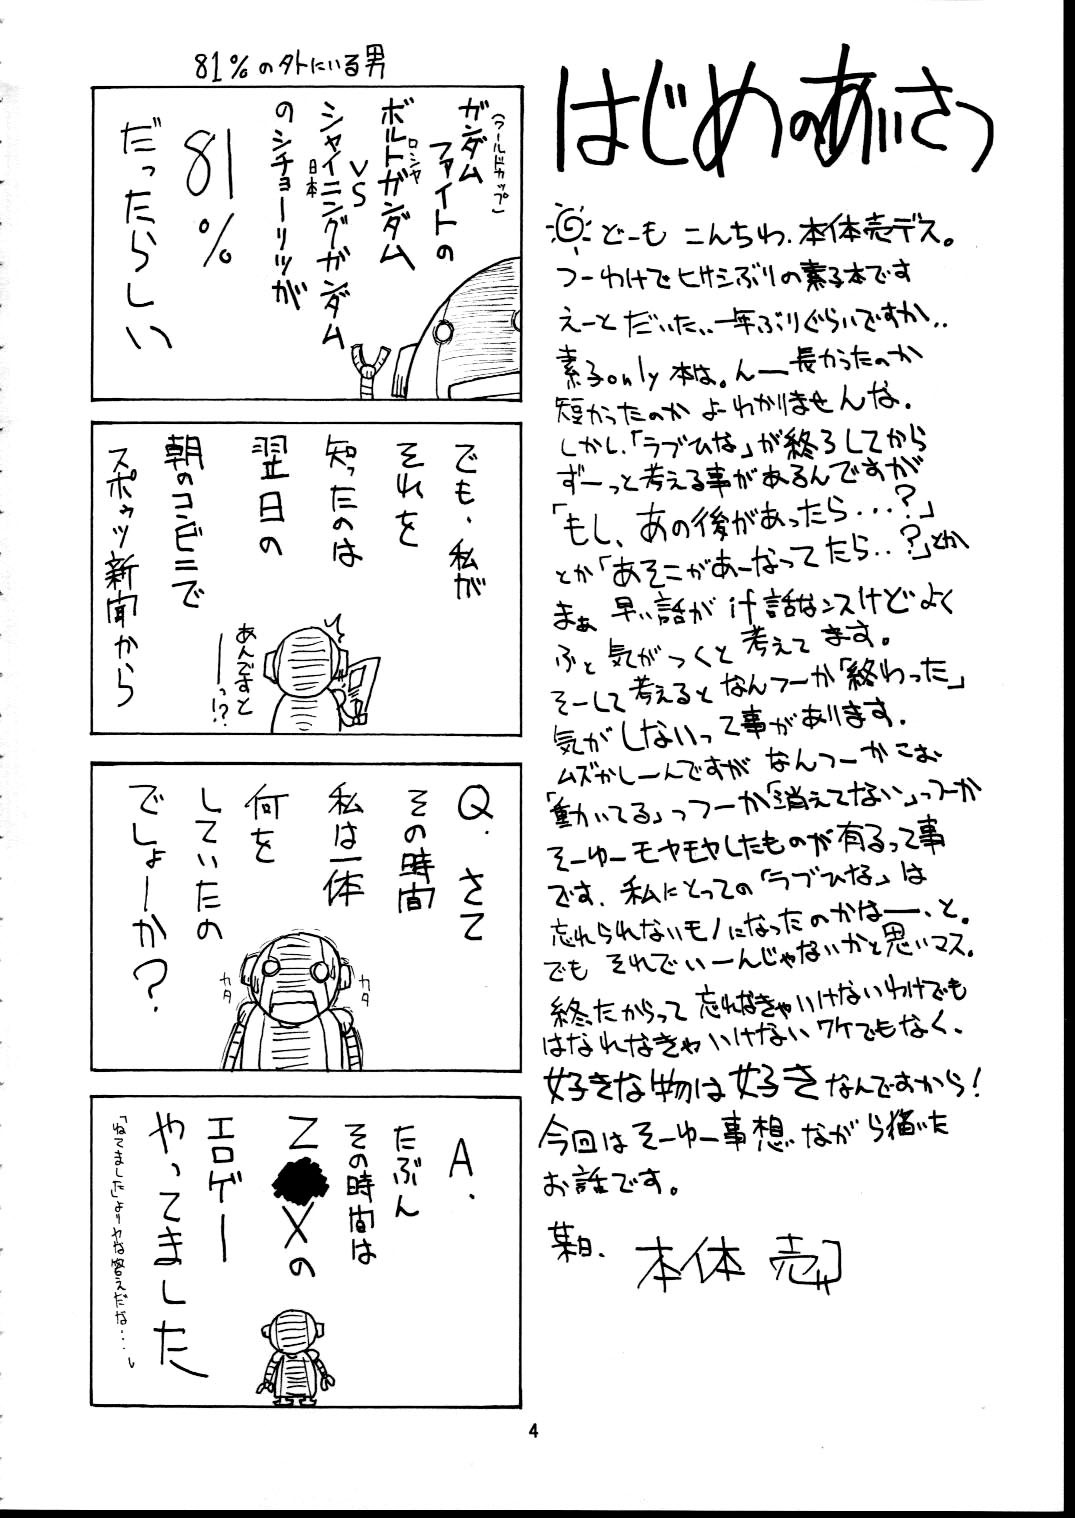 はじめのあいさつ
どーも こんちわ、本体売デス。
つーわけでヒサシぶりの素子本です
えーと だいたい、一年ぶりぐらいですか、、
素子only本は。んー長かったのか
短かったのか よーわかりませんな.
しかし、「ラブひな」が終ろしてから
ずーっと考える事があるんですが
「もし、あの後があったら・・・?」
とか「あそこがあーなってたら・・?」とか
まぁ 早い話が if話なンスけどよく
ふと 気がつくと 考えてます。
そーして考えるとなんつーか「終わった」
気がしないって事があります.
ムズかしーんですが なんつーか こお
「動いてる」っつーか「消えてない」っつーか
そーゆーモヤモヤしたものが有るって事
です. 私にとっての「ラブひな」は
忘れられないモノになったのかなー、と。
でも それでいーんじゃないかと思いマス。
終ったからって 忘れなきゃいけないわけでも
はなれなきゃいけないワケでもなく、
好きな物は好きなんですから!
今回は そーゆー事想いながら描いた
お話です。
某日、 本体 売
81%の外にいる男
(ワールドカップ)
ガンダム
ファイトの
ロシヤ
ボルトガンダム
VS
日本
シャイニングガンダム
のシチョーリツが
81%
だったらしい
でも、私が
それを
知ったのは
翌日の
朝のコンビニで
スポゥツ新聞から
あんですと
ーっ!?
Q. さて
その時間
私は一体
何を
していたの
でしょーか?
カタ
カタ
A.
たぶん
その時間は
Z●Xの
エロゲー
やってました
「ねてました」よりヤな答えだな・・・し
4